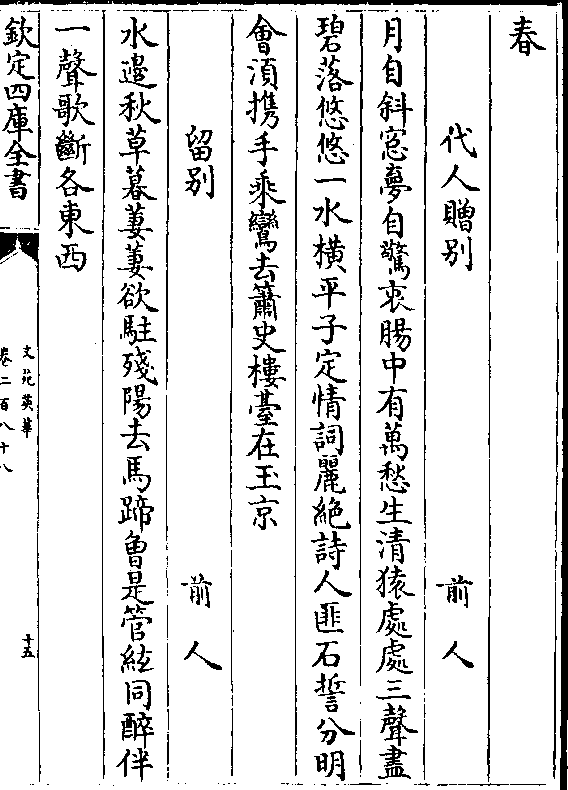 春
代人贈別　前人
月自斜窓夢自驚衷腸中有萬愁生清猿處處三聲盡
碧落悠悠一水橫平子定情詞麗絶詩人匪石誓分明
會湏攜手乘鸞去簫史樓臺在玉京
留別　前人
水邉秋草暮萋萋欲駐殘陽去馬蹄曾是管絃同醉伴
一聲歌斷各東西
欽定四庫全書
文苑英華
卷二百八十八
十五